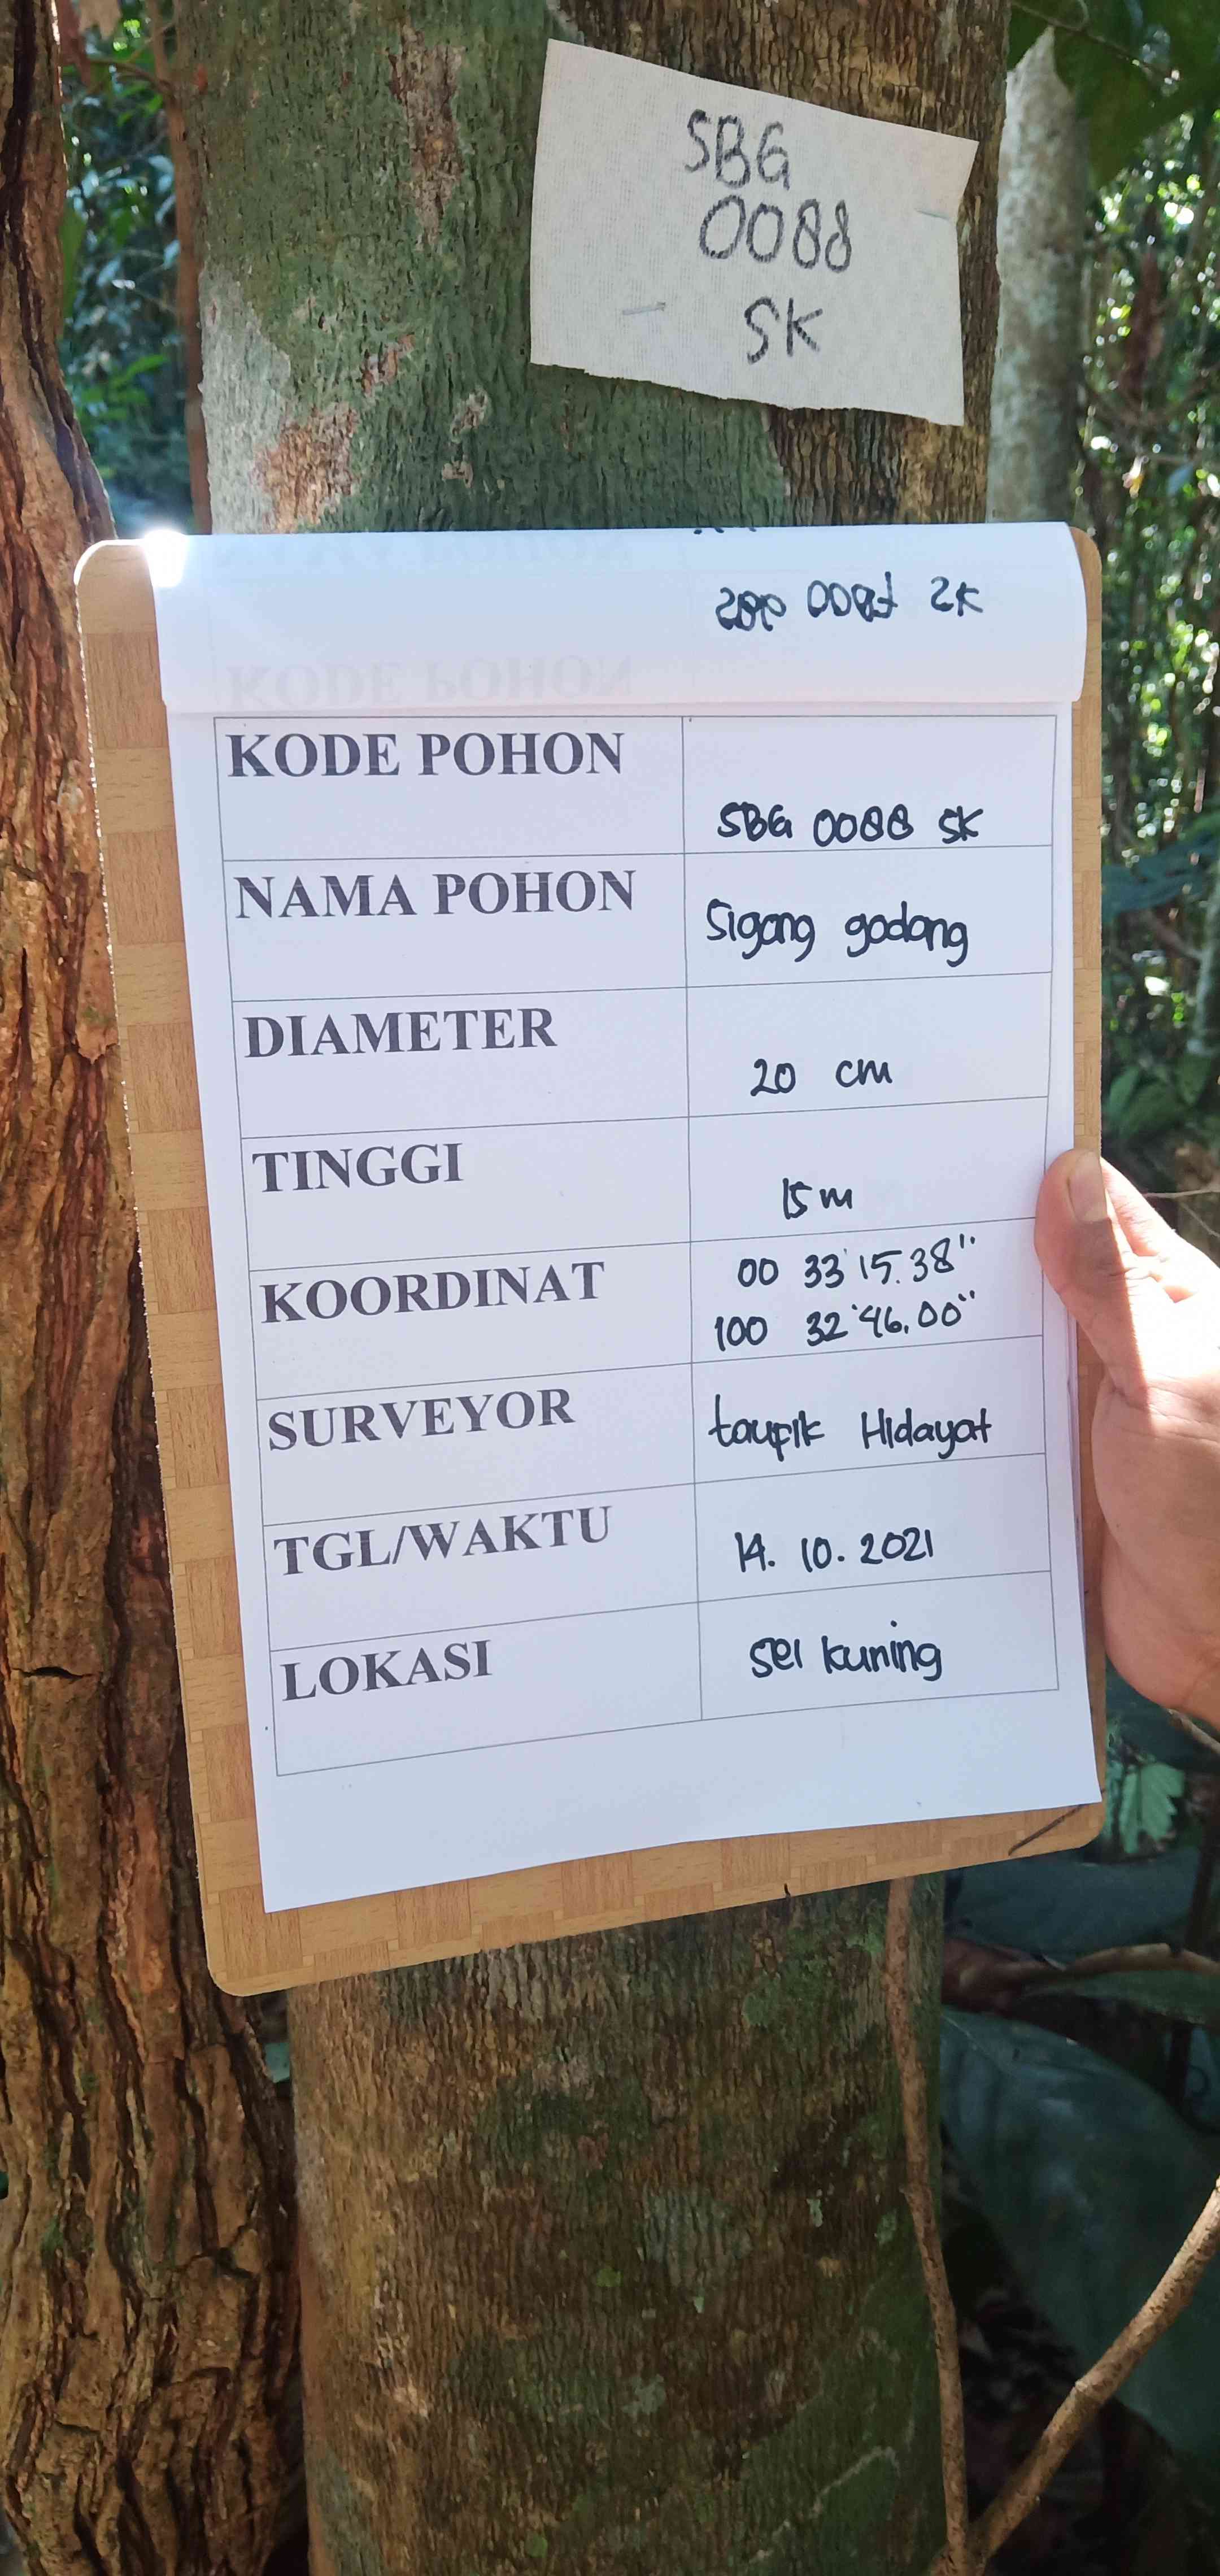 SBG
0088
SK
KODE POHON
SBG 0088 SK
NAMA POHON
Sigang godang
DIAMETER
20 cm
TINGGI
15 m
KOORDINAT
00 33' 15.38"
100 32' 46.00"
SURVEYOR
taufik Hidayat
TGL/WAKTU
14. 10. 2021
LOKASI
sei kuning